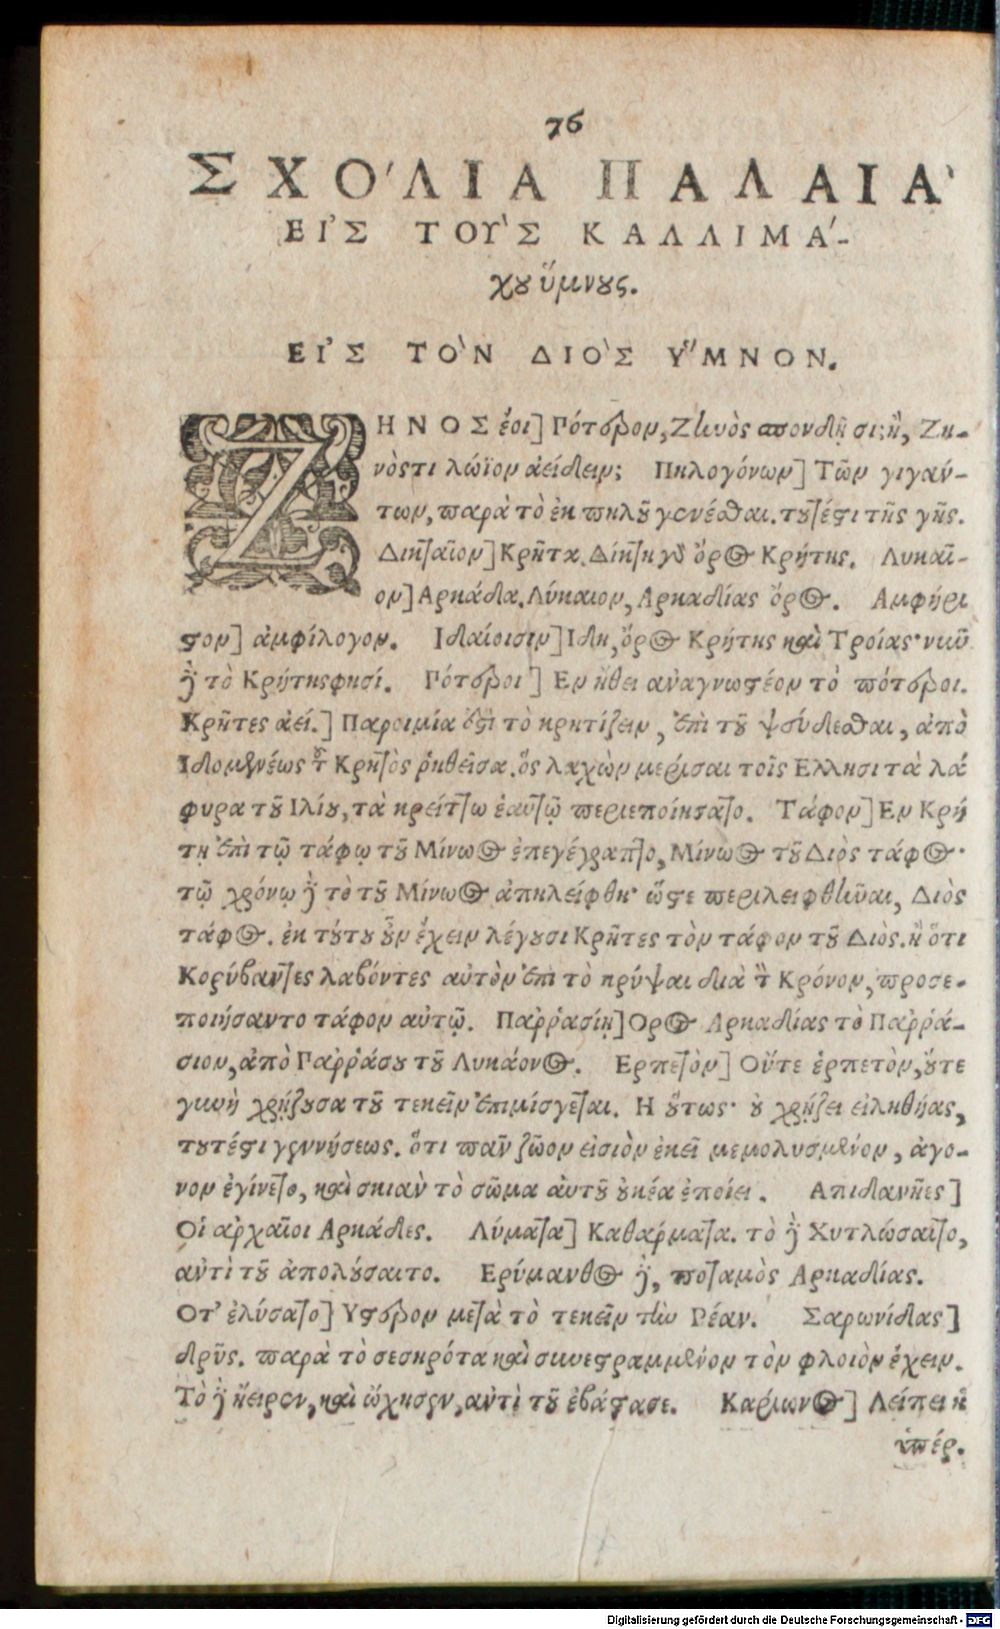 76
ΣΧΟ'ΛΙΑ ΠΑΛΑΙΑ'
ΕΙ'Σ ΤΟΥ'Σ ΚΑΛΛΙΜΑ'-
χου ὕμνους.
ΕΙ'Σ ΤΟ'Ν ΔΙΟ'Σ Υ῞ΜΝΟΝ.
ΖΗΝΟΣ ἔοι] Γότερον, Ζηνὸς σπονδῇ σιν, ἢ, Ζη-
νὸς τι λώϊον ἀείδειν; Πηλογόνων] Τῶν γιγάν-
των, παρὰ τὸ ἐκ πηλοῦ γενέσθαι. τουτέστι τῆς γῆς.
Δικταῖον] Κρῆτα. Δίκτη γδ ὄρος Κρήτης. Λυκαῖ-
ον] Αρκάδα. Λύκαιον, Αρκαδίας ὄρος. Αμφήρι
στον] ἀμφίλογον. Ιδαίοισιν] Ιδη, ὄρος Κρήτης καὶ Τροίας· νιῶ
δὲ τὸ Κρήτης φησί. Γότεροι] Εν ἤθει ἀναγνωστέον τὸ πότεροι.
Κρῆτες ἀεί.] Παροιμία ἐστὶ τὸ κρητίζειν, ἐπὶ τοῦ ψεύδεσθαι, ἀπὸ
Ιδομενέως τοῦ Κρητὸς ῥηθεῖσα. ὅς λαχὼν μερίσαι τοῖς Ελλησι τὰ λά
φυρα τοῦ Ιλίου, τὰ κρείττω ἑαυτῷ περιεποίησατο. Τάφον] Εν Κρή
τῃ ἐπὶ τῷ τάφῳ τοῦ Μίνωος ἐπεγέγραπτο, Μίνωος τοῦ Διὸς τάφος·
τῷ χρόνῳ δὲ τὸ τοῦ Μίνωος ἀπηλείφθη· ὥστε περιλειφθῆναι, Διὸς
τάφος. ἐκ τούτου οὖν ἔχειν λέγουσι Κρῆτες τὸν τάφον τοῦ Διὸς. ἢ ὅτι
Κορύβαντες λαβόντες αὐτὸν ἐπὶ τὸ κρύψαι διὰ τὸν Κρόνον, προσε-
ποιήσαντο τάφον αὐτῷ. Παῤῥασίῃ] Ορος Αρκαδίας τὸ Παῤῥά-
σιον, ἀπὸ Γαῤῥάσου τοῦ Λυκάονος. Ερπετὸν] Οὔτε ἑρπετὸν, οὔτε
γυνὴ χρῄζουσα τοῦ τεκεῖν ἐπιμίσγεται. Η οὕτως· οὐ χρῄζει εἰληθήας,
τουτέστι γεννήσεως. ὅτι πᾶν ζῶον εἰσιὸν ἐκεῖ μεμολυσμένον, ἀγο-
νον ἐγίνετο, καὶ σκιὰν τὸ σῶμα ἀυτοῦ οὐκέα ἐποίει. Απιδανῆες]
Οἱ ἀρχαῖοι Αρκάδες. Λύματα] Καθαρματα. τὸ δὲ Χυτλώσαιτο,
αὐτὶ τοῦ ἀπολούσαιτο. Ερύμανθος δὲ, ποταμὸς Αρκαδίας.
Οτ' ἐλύσατο] Υστερον μετὰ τὸ τεκεῖν τὴν Ρέαν. Σαρωνίδας]
δρῦς. παρὰ τὸ σεσηρότα καὶ συνεστραμμένον τὸν φλοιὸν ἔχειν.
Τὸ δὲ ἤειρεν, καὶ ὤχησεν, αὐτὶ τοῦ ἐβάστασε. Καρίωνος] Λείπει ἡ
ὑπέρ.
Digitalisierung gefördert durch die Deutsche Forschungsgemeinschaft - DFG